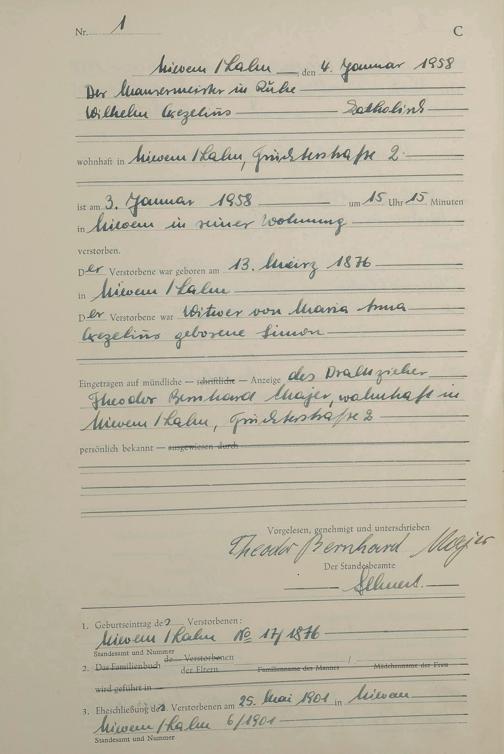 Nr. 1 C
Nievern / Lahn, den 4. Januar 1958
Der Maurermeister in Ruhe
Wilhelm Gezelius katholisch
wohnhaft in Nievern / Lahn, Grüchterstraße 2
ist am 3. Januar 1958 um 15 Uhr 15 Minuten
in Nievern in seiner Wohnung
verstorben.
Der Verstorbene war geboren am 13. März 1876
in Nievern / Lahn
Der Verstorbene war Witwer von Maria Anna
Gezelius geborene Simon
Eingetragen auf mündliche — schriftliche — Anzeige des Drahtzieher
Theodor Bernhard Majer, wohnhaft in
Nievern / Lahn, Grüchterstraße 2
persönlich bekannt — ausgewiesen durch
Vorgelesen, genehmigt und unterschrieben
Theodor Bernhard Majer
Der Standesbeamte
1. Geburtseintrag des Verstorbenen:
Nievern / Lahn No 17/1876
Standesamt und Nummer
2. Das Familienbuch de Verstorbenen / der Eltern Familienname des Mannes / Mädchenname der Frau
wird geführt in
3. Eheschließung des Verstorbenen am 25. Mai 1901 in Nievern
Nievern / Lahn 6/1901
Standesamt und Nummer